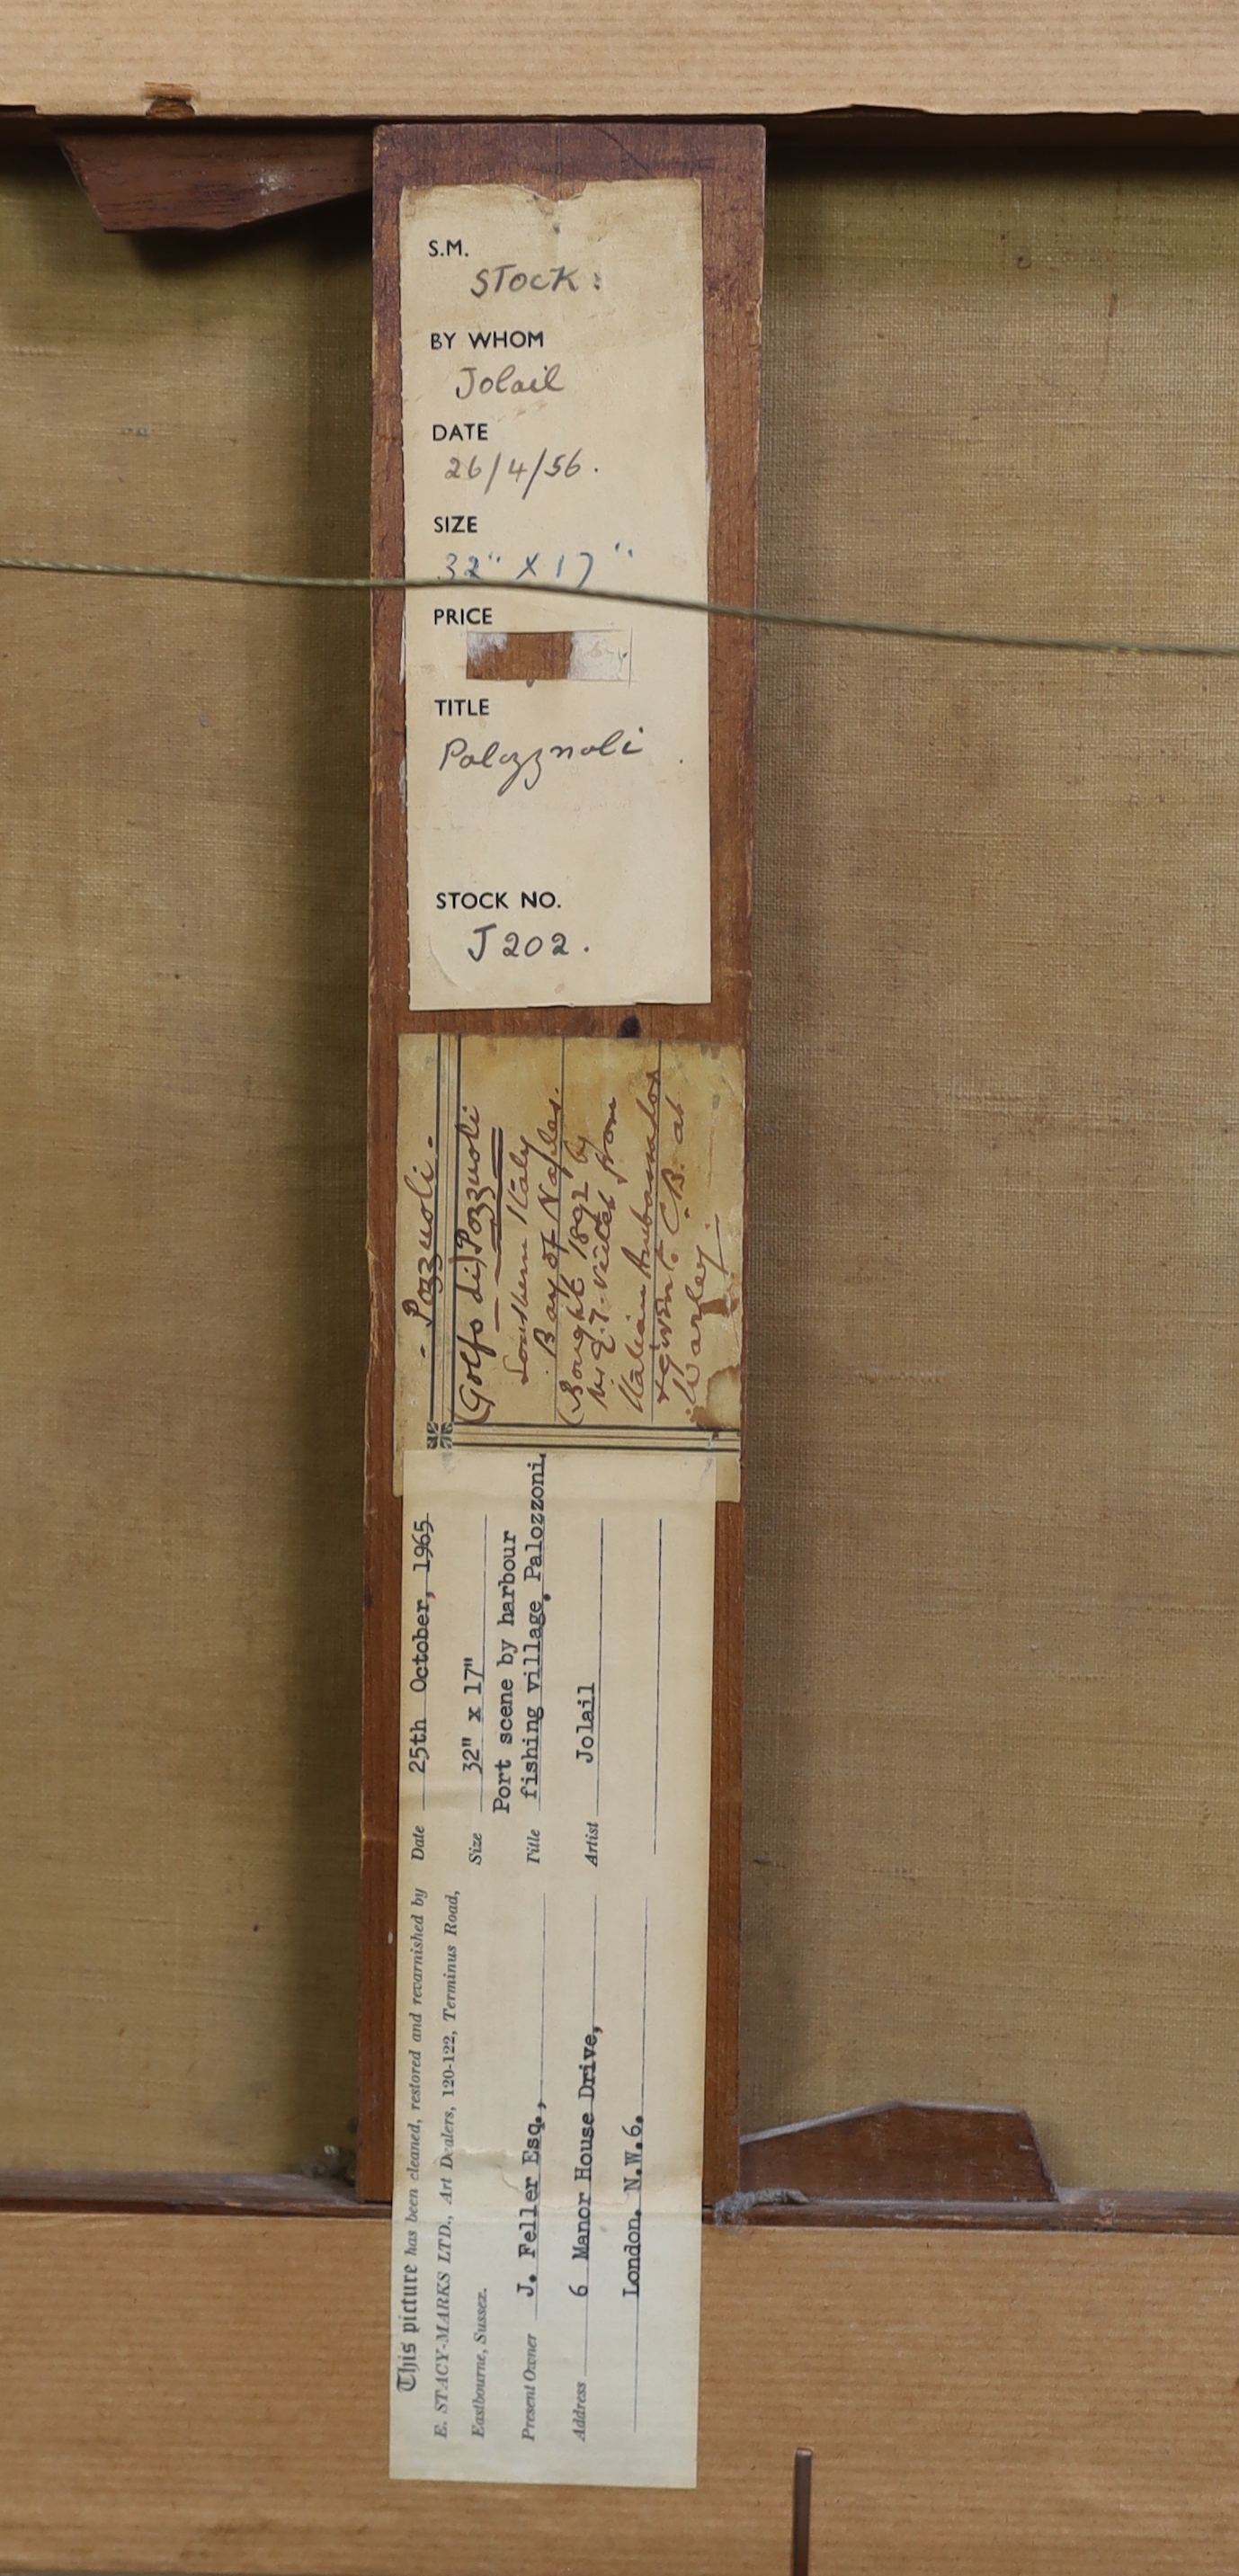 S.M.
STOCK:
BY WHOM
Jolail
DATE
26/4/56.
SIZE
32" X 17"
PRICE
TITLE
Palozznoli
STOCK NO.
J202.
- Pozzuoli. -
(Golfo di) Pozzuoli
Southern Italy
Bay of Naples.
(Bought 1892 by
from
Italian Ambassador
& given to C.B. at
Warley
This picture has been cleaned, restored and revarnished by
E. STACY-MARKS LTD., Art Dealers, 120-122, Terminus Road,
Eastbourne, Sussex.
Present Owner J. Feller Esq.,
Address 6 Manor House Drive,
London. N.W.6.
Date 25th October, 1965
Size 32" x 17"
Port scene by harbour
Title fishing village. Palozzoni.
Artist Jolail